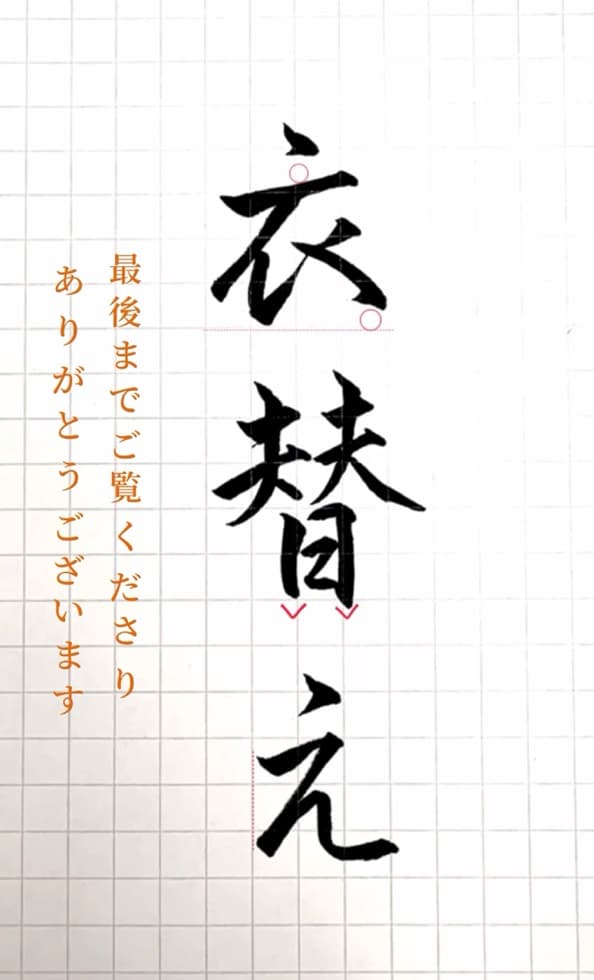 衣替え
最後までご覧くださり
ありがとうございます